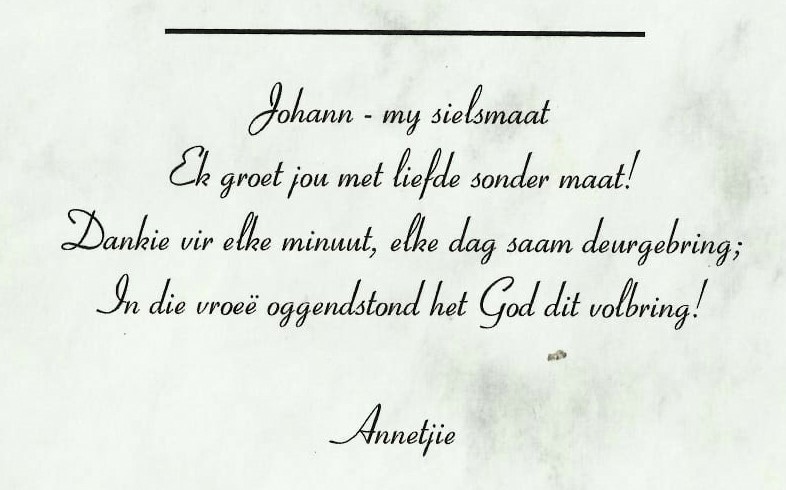 Johann - my sielsmaat
Ek groet jou met liefde sonder maat!
Dankie vir elke minuut, elke dag saam deurgebring;
In die vroeë oggendstond het God dit volbring!
Annetjie